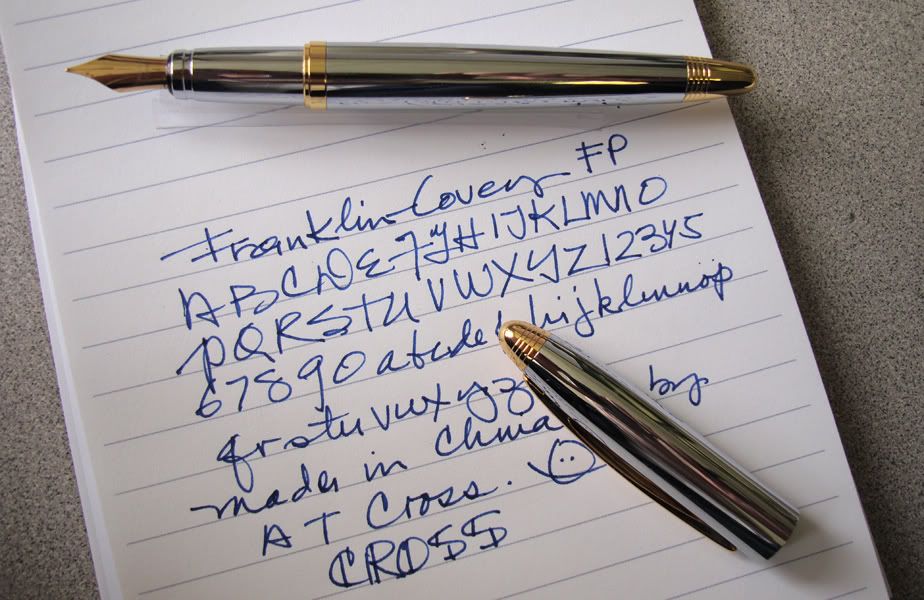 Franklin Covey FP
ABCDEFGHIJKLMNO
PQRSTUVWXYZ12345
67890 abcde hijklmnop
qrstuvwxyz by
made in China
AT Cross.
CROSS